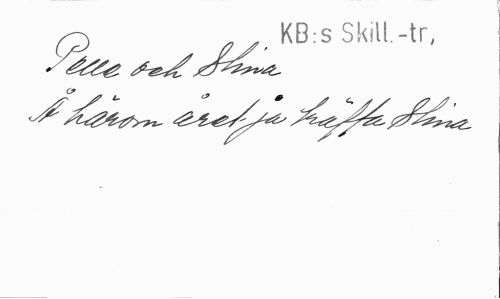 KB:s Skill.-tr,
Pelle och Stina
Å härom året ja träffa Stina